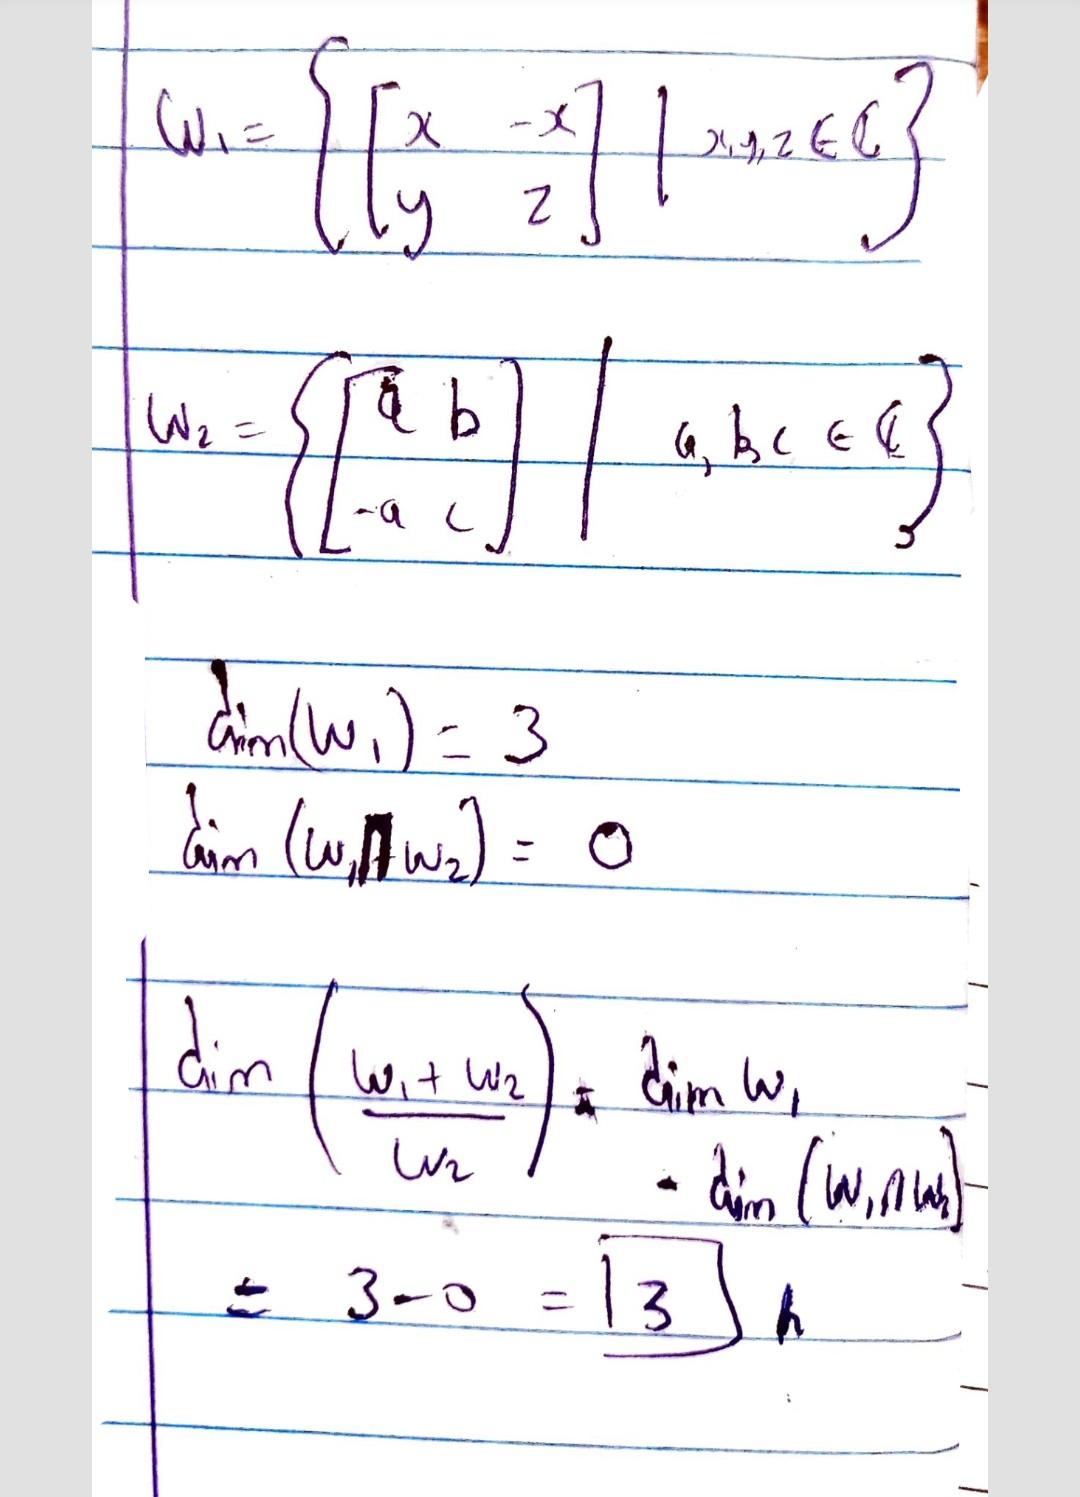 W₁ = { [ x -x ] | x, y, z ∈ ℂ }
[ y z ]
W₂ = { [ a b ] | a, b, c ∈ ℂ }
[ -a c ]
dim(W₁) = 3
dim (W₁∩W₂) = 0
dim ( W₁ + W₂ / W₂ ) = dim W₁
- dim (W₁∩W₂)
= 3-0 = 3